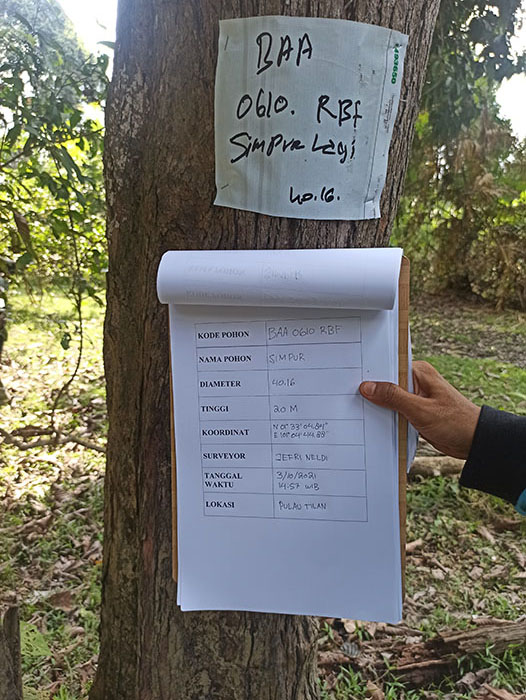 BAA
0610. RBf
Simpur Lagi
40.16.
KODE POHON BAA 0610 RBF
NAMA POHON SIMPUR
DIAMETER 40.16
TINGGI 20 M
KOORDINAT
SURVEYOR JEFRI NELDI
TANGGAL 3/10/2021
WAKTU 14:57 WIB
LOKASI PULAU TILAN